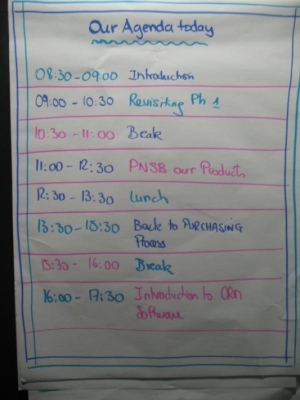 Our Agenda today
08:30-09:00 Introduction
09:00 - 10:30 Revisiting Ph 1
10:30 - 11:00 Beak
11:00 - 12:30 PNSB our Products
12:30 - 13:30 Lunch
13:30 - 15:30 Back to PURCHASING
Process
15:30 - 16:00 Break
16:00 - 17:30 Introduction to CRM
Software